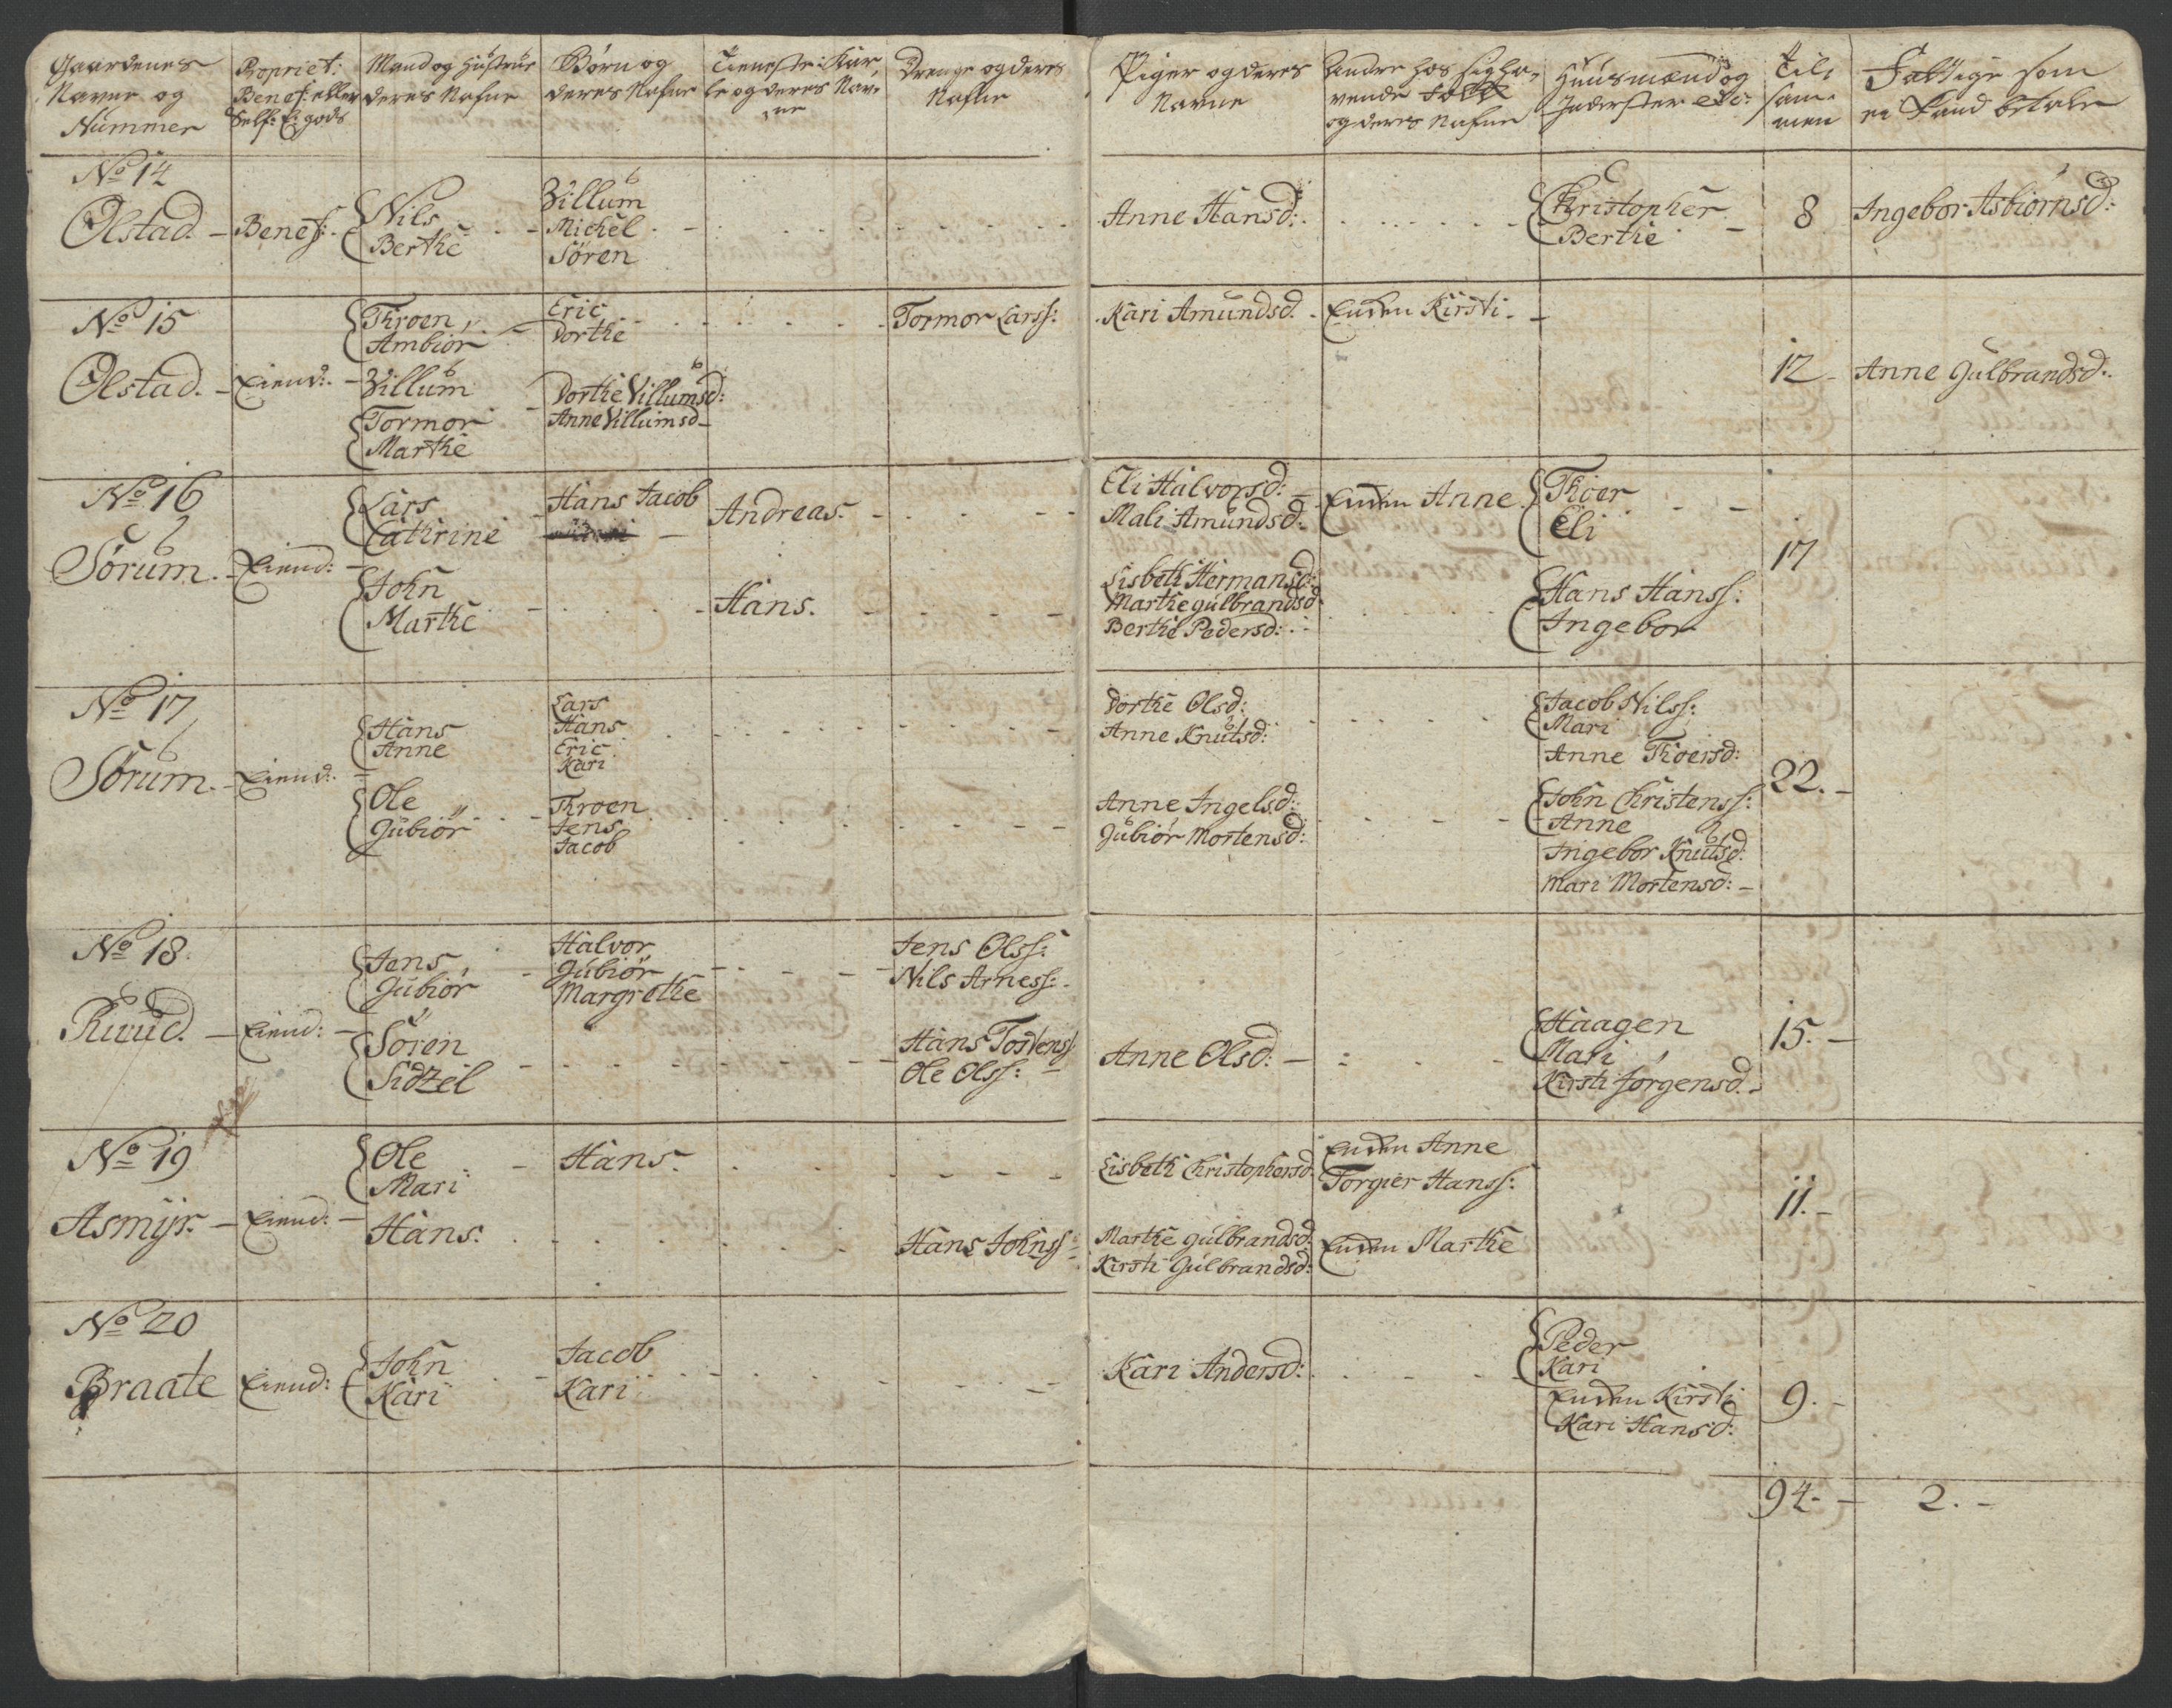 Gaardenes
Navne og
Nummer
Propriet:
Benef: eller
Self: E: gods
Mand og Hustrue
deres Nafne
Børn og
deres Nafne
Tieneste Kar
le og deres Nav
ne
Drenge og deres
Nafne
Piger og deres
Navne
Andre hos sig ha
vende Folk
og deres Nafne
Huusmænd og
Inderster etc:
Til
sam
men
Fattige som
ei kand betale
No 14
Olstad. - Benef:
Nils
Berthe
Villum
Michel
Søren
Anne Hansd:
Christopher
Berthe
8
Ingebor Asbiørnsd:
No 15
Olstad. - Eiend:
Throen
Ambiør
Villum
Tormor
Marthe
Eric
Dorthe
Dorthe Villumsd:
Anne Villumsd
Tormor Larss:
Kari Amundsd.
Enken Kirsti
12
Anne Gulbrandsd:
No 16
Sørum. - Eiend:
Lars
Cathrine
John
Marthe
Hans Jacob
Andreas.
Hans.
Eli Halvorsd:
Mali Amundsd:
Lisbeth Hermansd:
Marthe gulbrandsd
Berthe Pedersd:
Enken Anne
Thoer
Eli
Hans Hanss:
Ingebor
17
No 17
Sørum. - Eiend:
Hans
Anne
Ole
Gubiør
Lars
Hans
Eric
Kari
Throen
Jens
Jacob
Dorthe Olsd:
Anne Knutsd:
Anne Ingelsd:
Gubiør Mortensd:
Jacob Nilss:
Mari
Anne Thoersd:
John Christenss:
Anne
Ingebor Knutsd:
Mari Mortensd:
22.
No 18.
Ruud. - Eiend:
Jens
Gubiør
Søren
Sidzel
Halvor
Gubiør
Margrethe
Jens Olss:
Nils Arness:
Hans Tostens
Ole Olss:
Anne Olsd:
Haagen
Mari
Kirsti Jørgensd.
15.
No 19
Asmyr. - Eiend:
Ole
Mari
Hans.
Hans.
Hans Johnss
Lisbeth Christophersd
Marthe gulbrandsd.
Kirsti Gulbrandsd:
Enken Anne
Torgier Hanss:
Enken Marthe
11.
No 20
Braate Eiend:
John
Kari
Jacob
Kari
Kari Andersd:
Peder
Kari
Enken Kirsti
Kari Hansd:
9.
94.
2.